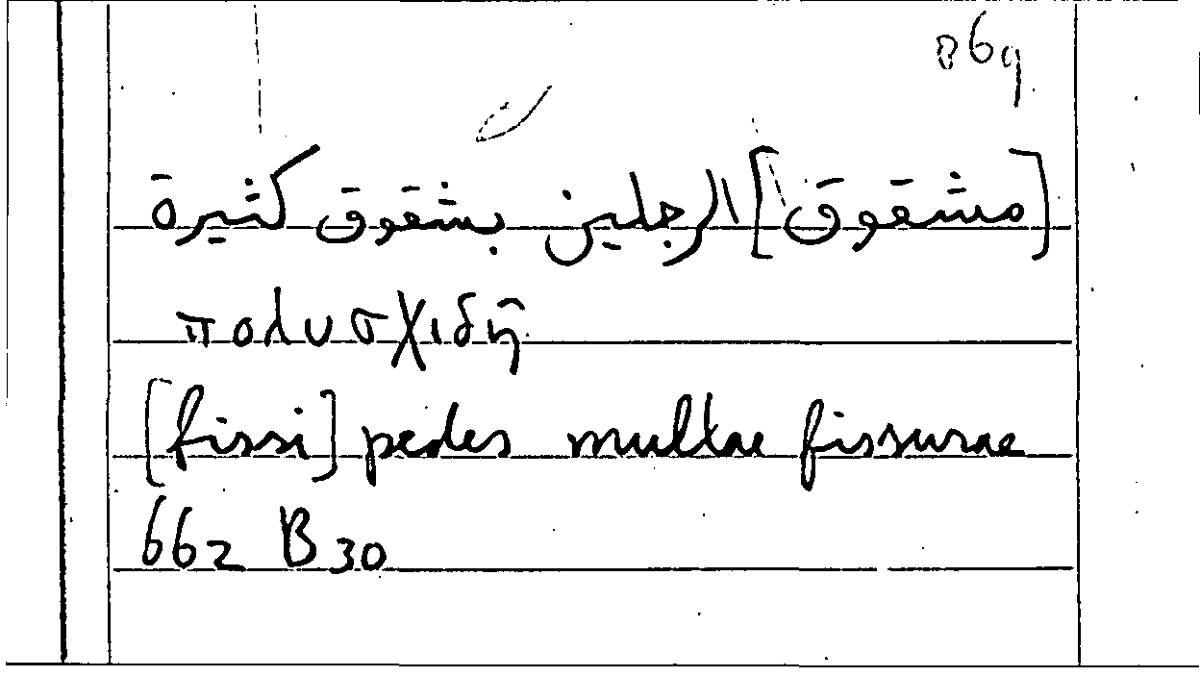 [مشقوق] الرجلين بشقوق كثيرة
πολυσχιδῆ
[fissi] pedes multae fissurae
662 B 30